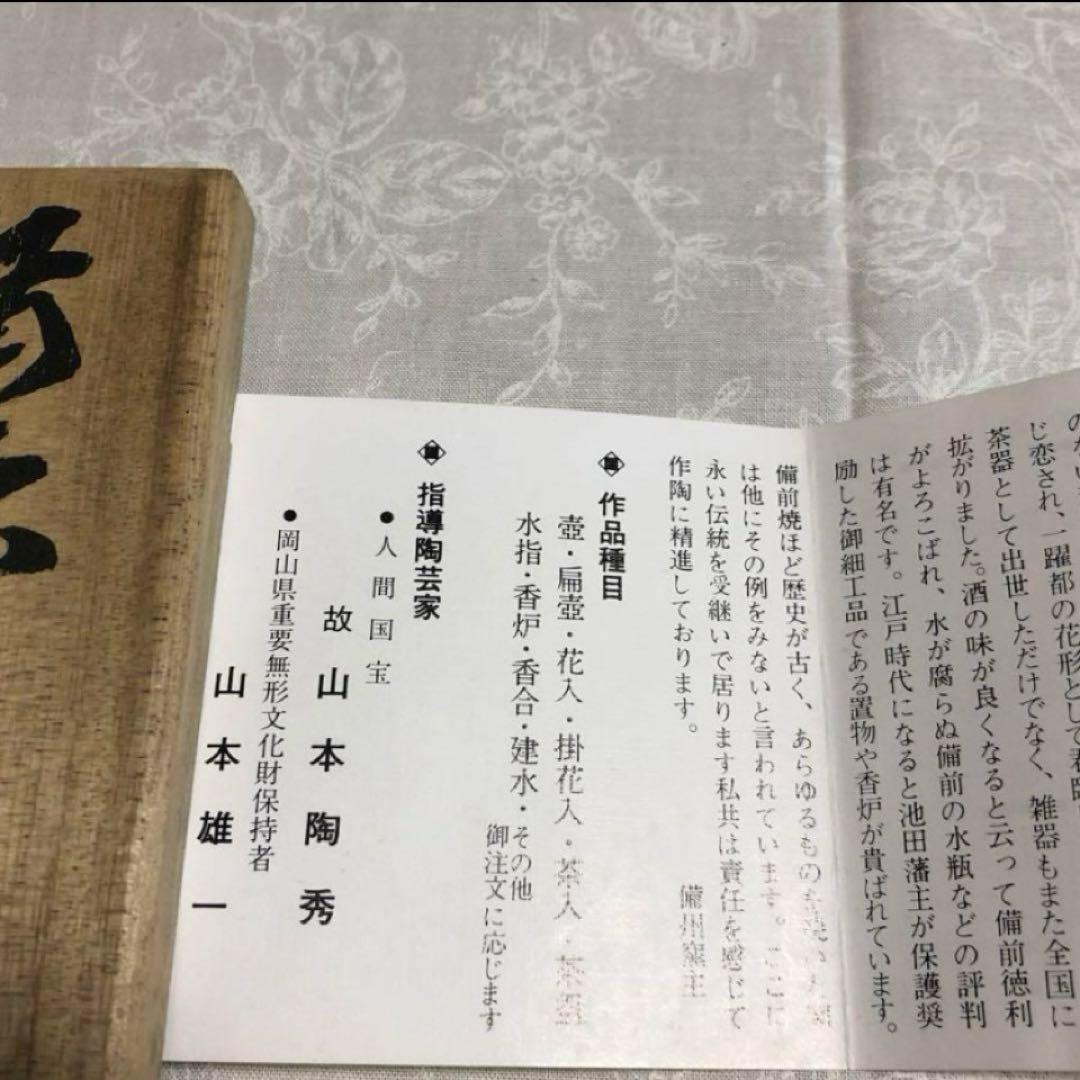 じ恋され、一躍都の花形として君臨
茶器として出世しただけでなく、雑器もまた全国に
拡がりました。酒の味が良くなると云って備前徳利
がよろこばれ、水が腐らぬ備前の水瓶などの評判
は有名です。江戸時代になると池田藩主が保護奨
励した御細工品である置物や香炉が貴ばれています。
備前焼ほど歴史が古く、あらゆるものを
は他にその例をみないと言われています。ここに
永い伝統を受継いで居ります私共は責任を感じて
作陶に精進しております。
備州窯主
作品種目
壺・扁壺・花入・掛花入・茶入・茶盌
水指・香炉・香合・建水・その他
御注文に応じます
指導陶芸家
●人間国宝
故山本陶秀
●岡山県重要無形文化財保持者
山本雄一